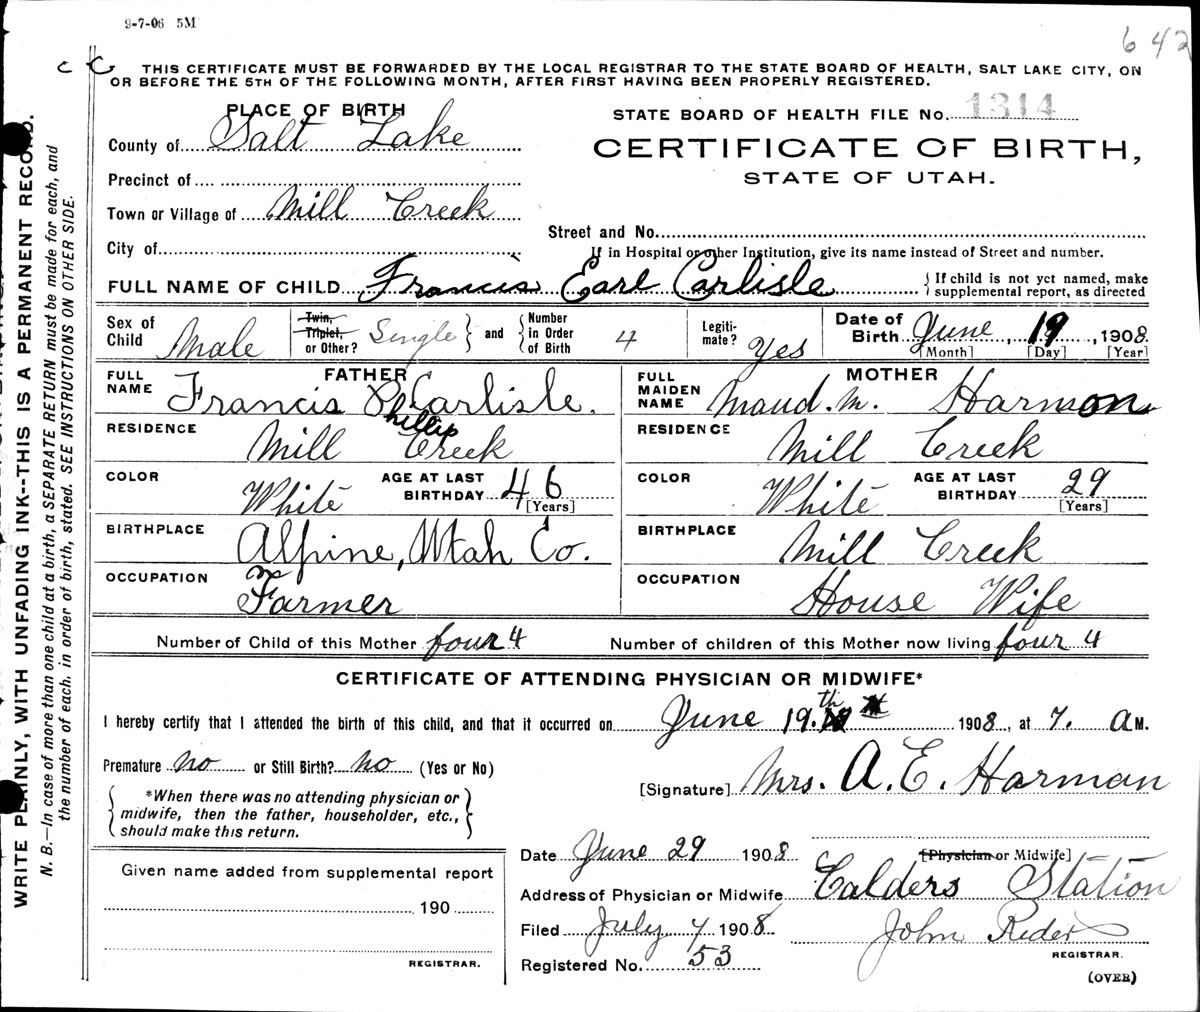 9-7-06 5M
642
C C THIS CERTIFICATE MUST BE FORWARDED BY THE LOCAL REGISTRAR TO THE STATE BOARD OF HEALTH, SALT LAKE CITY, ON
OR BEFORE THE 5TH OF THE FOLLOWING MONTH, AFTER FIRST HAVING BEEN PROPERLY REGISTERED.
PLACE OF BIRTH
STATE BOARD OF HEALTH FILE No. 1314
County of Salt Lake
CERTIFICATE OF BIRTH,
STATE OF UTAH.
Precinct of
Town or Village of Mill Creek
Street and No.
City of
If in Hospital or other Institution, give its name instead of Street and number.
FULL NAME OF CHILD Francis Earl Carlisle
If child is not yet named, make
supplemental report, as directed
Sex of Child Male
Twin, Triplet, or Other? Single and Number in Order of Birth 4
Legiti- mate? Yes
Date of Birth June 19, 1908
[Month] [Day] [Year]
FATHER
FULL NAME Francis P Carlisle.
Phillip
RESIDENCE Mill Creek
COLOR White AGE AT LAST BIRTHDAY 46
[Years]
BIRTHPLACE Alpine, Utah Co.
OCCUPATION Farmer
MOTHER
FULL MAIDEN NAME Maud. M. Harmon
RESIDENCE Mill Creek
COLOR White AGE AT LAST BIRTHDAY 29
[Years]
BIRTHPLACE Mill Creek
OCCUPATION House Wife
Number of Child of this Mother four 4 Number of children of this Mother now living four 4
CERTIFICATE OF ATTENDING PHYSICIAN OR MIDWIFE*
I hereby certify that I attended the birth of this child, and that it occurred on June 19th 1908, at 7. A M.
Premature no or Still Birth? no (Yes or No)
[Signature] Mrs. A. E. Harman
*When there was no attending physician or
midwife, then the father, householder, etc.,
should make this return.
[Physician or Midwife]
Date June 29 1908
Given name added from supplemental report
190
REGISTRAR.
Address of Physician or Midwife Calders Station
Filed July 7 1908 John Rider
REGISTRAR.
Registered No. 53
(OVER)
WRITE PLAINLY, WITH UNFADING INK--THIS IS A PERMANENT RECORD.
N. B.—In case of more than one child at a birth, a SEPARATE RETURN must be made for each, and
the number of each, in order of birth, stated. SEE INSTRUCTIONS ON OTHER SIDE.